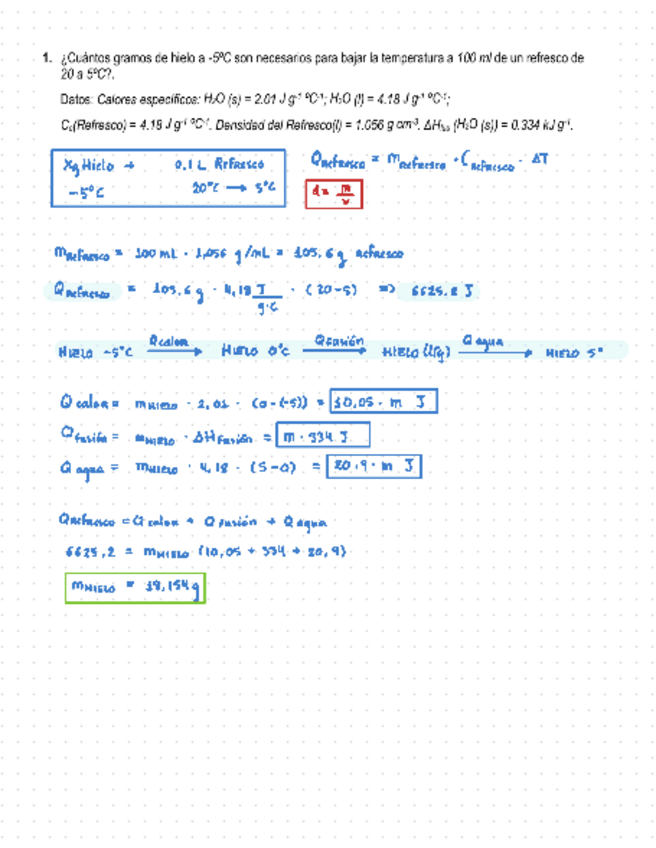 1. ¿Cuántos gramos de hielo a -5ºC son necesarios para bajar la temperatura a 100 ml de un refresco de
20 a 5ºC?.
Datos: Calores específicos: H₂O (s) = 2.01 J g⁻¹ ºC⁻¹; H₂O (l) = 4.18 J g⁻¹ ºC⁻¹;
Cₑ(Refresco) = 4.18 J g⁻¹ ºC⁻¹. Densidad del Refresco(l) = 1.056 g cm⁻³. ΔHfus (H₂O (s)) = 0.334 kJ g⁻¹.
Xg Hielo → 0,1 L Refresco
-5°C 20°C → 5°C
Q Refresco = m Refresco · C Refresco · ΔT
d = m/v
m Refresco = 100 mL · 1,056 g/mL = 105,6 g Refresco
Q Refresco = 105,6 g · 4,18 J/g·C · (20-5) => 6625,2 J
HIELO -5°C Q calor → HIELO 0°C Q fusión → HIELO (liq) Q agua → HIELO 5°
Q calor = m HIELO · 2,01 · (0-(-5)) = 10,05 · m J
Q fusión = m HIELO · ΔH fusión = m · 334 J
Q agua = m HIELO · 4,18 · (5-0) = 20,9 · m J
Q Refresco = Q calor + Q fusión + Q agua
6625,2 = m HIELO (10,05 + 334 + 20,9)
m HIELO = 18,154 g